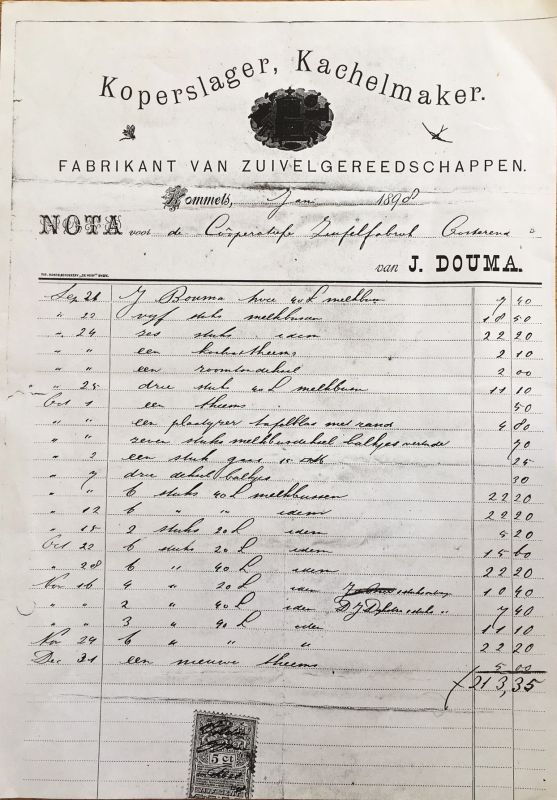 Koperslager, Kachelmaker.
FABRIKANT VAN ZUIVELGEREEDSCHAPPEN.
Rommels, Jan 1898
NOTA voor de Coöperatiefe Zuifelfabriek Oosterend
van J. DOUMA.
Sep J Bouma 40 L melkbus 7 40
" 22 vijf stuks melkbussen 18 50
" 24 zes stuks idem 22 20
" " een theems 2 10
" " een roomtondeksel 2 00
" 25 drie stuk 40 L melkbussen 11 10
Oct 1 een theems 50
" " een tafelblad met rand 4 80
" " zeven stuks melkbusdeksel baltjes 70
" 2 een stuk gaas 25
" 7 drie deksel baltjes 30
" " 6 stuks 40 L melkbussen 22 20
" 12 6 " " idem 22 20
" 15 2 stuks 20 L idem 5 20
Oct 22 6 stuks 20 L idem 15 60
" 28 6 " 40 L idem 22 20
Nov 16 4 " 20 L idem 10 40
" " 2 " 40 L idem D J 7 40
" " 3 " 40 L idem 11 10
Nov 24 6 " " " 22 20
Dec 31 een nieuwe theems 5 00
213,35
5 ct